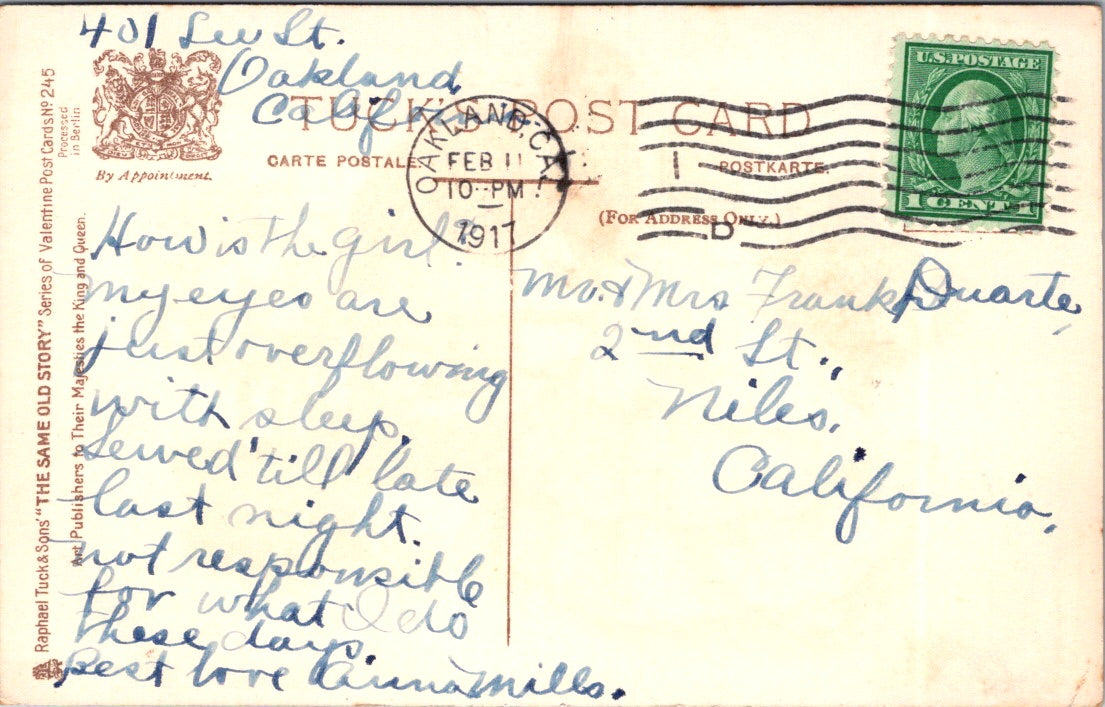 401 Lee St.
Oakland,
Calif.
TUCK'S POST CARD
CARTE POSTALE.
POSTKARTE.
(FOR ADDRESS ONLY.)
By Appointment.
OAKLAND, CAL.
FEB 11
10-PM
1917
1
D
U.S. POSTAGE
1 CENT 1
Raphael Tuck & Sons' "THE SAME OLD STORY" Series of Valentine Post Cards Nº 245
Processed
in Berlin
Art Publishers to Their Majesties the King and Queen.
How is the girl?
My eyes are
just overflowing
with sleep.
Sewed 'till late
last night.
not responsible
for what I do
these days.
Best love Anna Mills.
Mr. & Mrs Frank Duarte,
2nd St.,
Niles,
California,